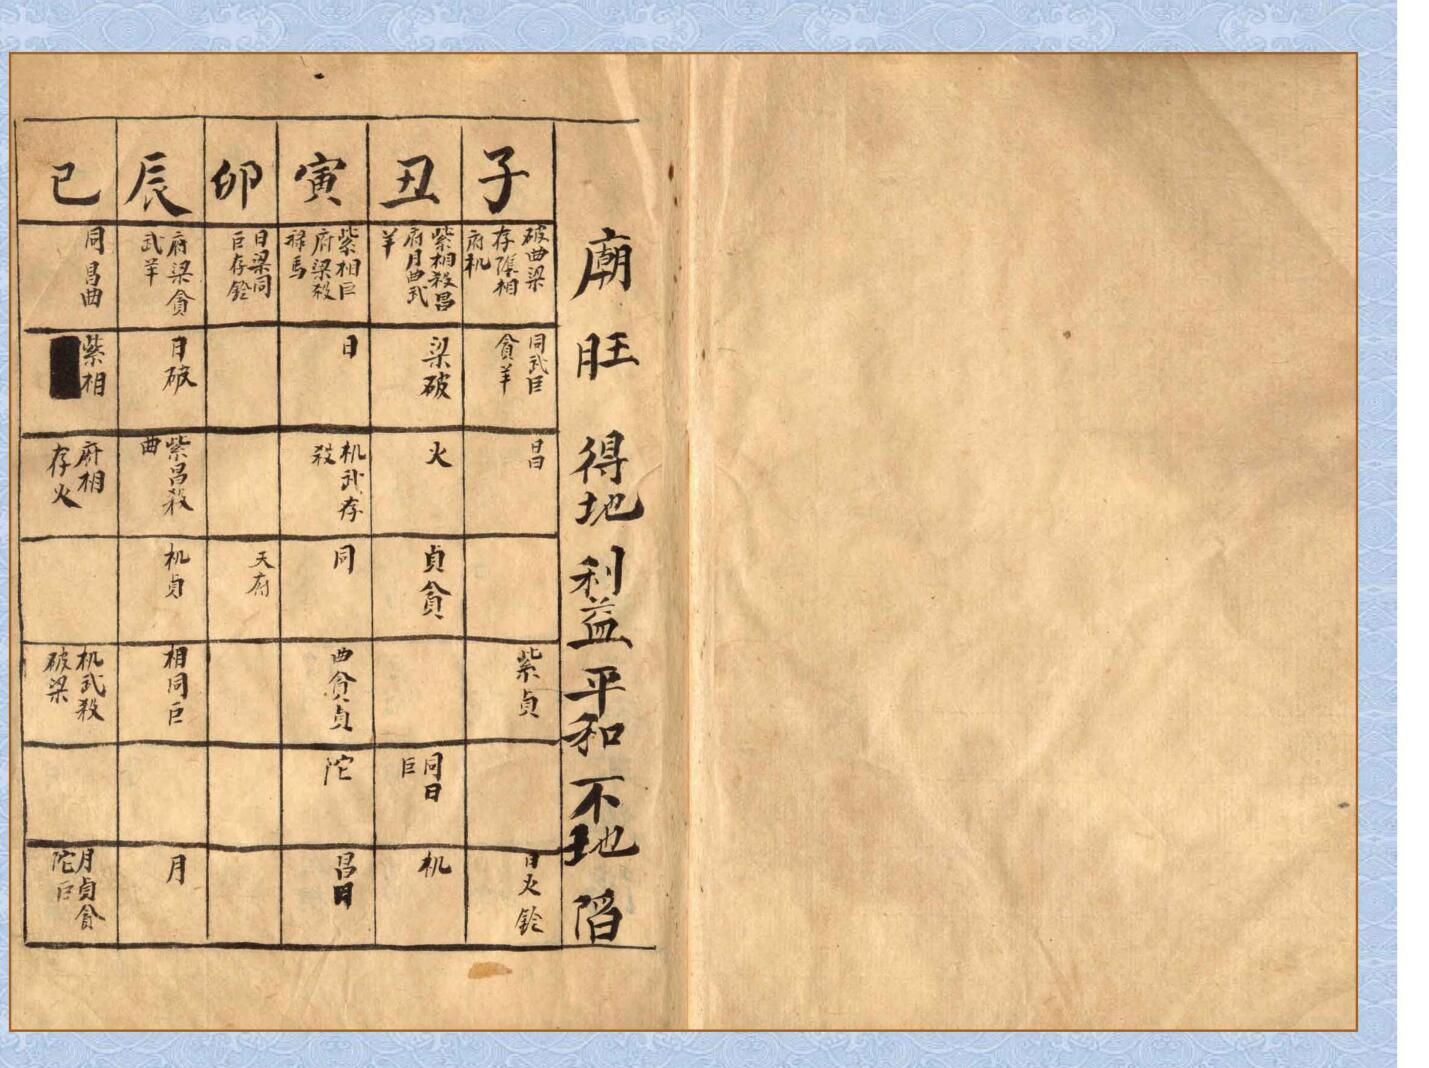 廟
旺
得地
利益
平和
不地
陷
子
破曲梁
存陰相
府机
同武巨
貪羊
昌
紫貞
日火鈴
丑
紫相殺昌
府月曲武
羊
梁破
火
貞貪
同日
巨
机
寅
紫相巨
府梁殺
祿馬
日
机武存
殺
同
曲貪貞
陀
昌
卯
日梁同
巨存鈴
天府
辰
府梁貪
武羊
日破
紫昌殺
曲
机貞
相同巨
月
巳
同昌曲
紫相
府相
存火
机武殺
破梁
月貞貪
陀巨